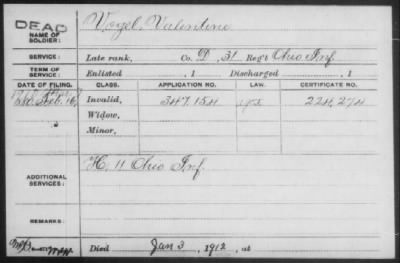 DEAD
NAME OF SOLDIER: Vogel, Valentine
SERVICE: Late rank, Co. D, 31 Reg't Ohio Inf.
TERM OF SERVICE: Enlisted , 1 Discharged , 1
DATE OF FILING. CLASS. APPLICATION NO. LAW. CERTIFICATE NO.
Feb. 16, Invalid, 347,154 224,274
Widow,
Minor,
ADDITIONAL SERVICES: H, 11 Ohio Inf.
REMARKS:
Died Jan 3, 1912, at